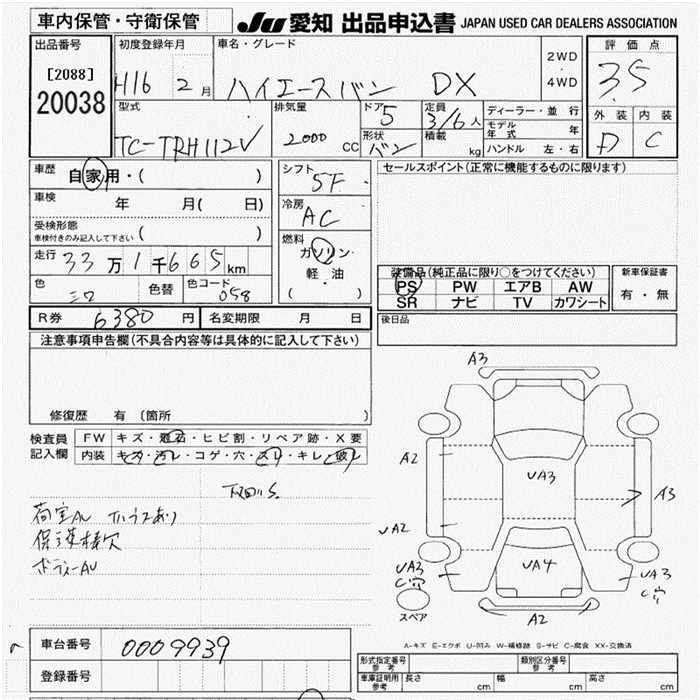 車内保管・守衛保管
JU 愛知 出品申込書 JAPAN USED CAR DEALERS ASSOCIATION
出品番号
[2088]
20038
初度登録年月
H16 2月
車名・グレード
ハイエースバン DX
2WD
・
4WD
評価点
3.5
外装 内装
D C
型式
TC-TRH112V
排気量
2000 CC
ドア
5
形状
バン
定員
3/6人
積載
kg
ディーラー・並行
モデル年式 年
ハンドル 左・右
車歴
自家用・( )
車検
年 月( 日)
受検形態
車検付きのみ記入して下さい ( )
走行 33万1千665km
色 シロ 色替 色コード 058
シフト
5F
冷房
AC
燃料
ガソリン・
軽・油
( )
セールスポイント(正常に機能するものに限ります)
装備品(純正品に限り○をつけてください)
PS PW エアB AW
SR ナビ TV カワシート
新車保証書
有・無
R券 6380円 名変期限 月 日
後日品
注意事項申告欄(不具合内容等は具体的に記入して下さい)
修復歴 有(箇所
検査員
記入欄
FW キズ・飛石・ヒビ割・リペア跡・X要
内装 キズ・汚レ・コゲ・穴・スレ・キレ・破レ
下回りS.
荷室AU
ボディーAU
A3
A2
UA3
A3
UA2
UA3
C穴
UA4
UA3
C穴
スペア
A2
A-キズ E-エクボ U-凹み W-補修跡 S-サビ C-腐食 XX-交換済
車台番号 0009939
登録番号
形式指定番号
参考
類別区分番号
参考
車庫証明用
参考
長さ cm 幅 cm 高さ cm